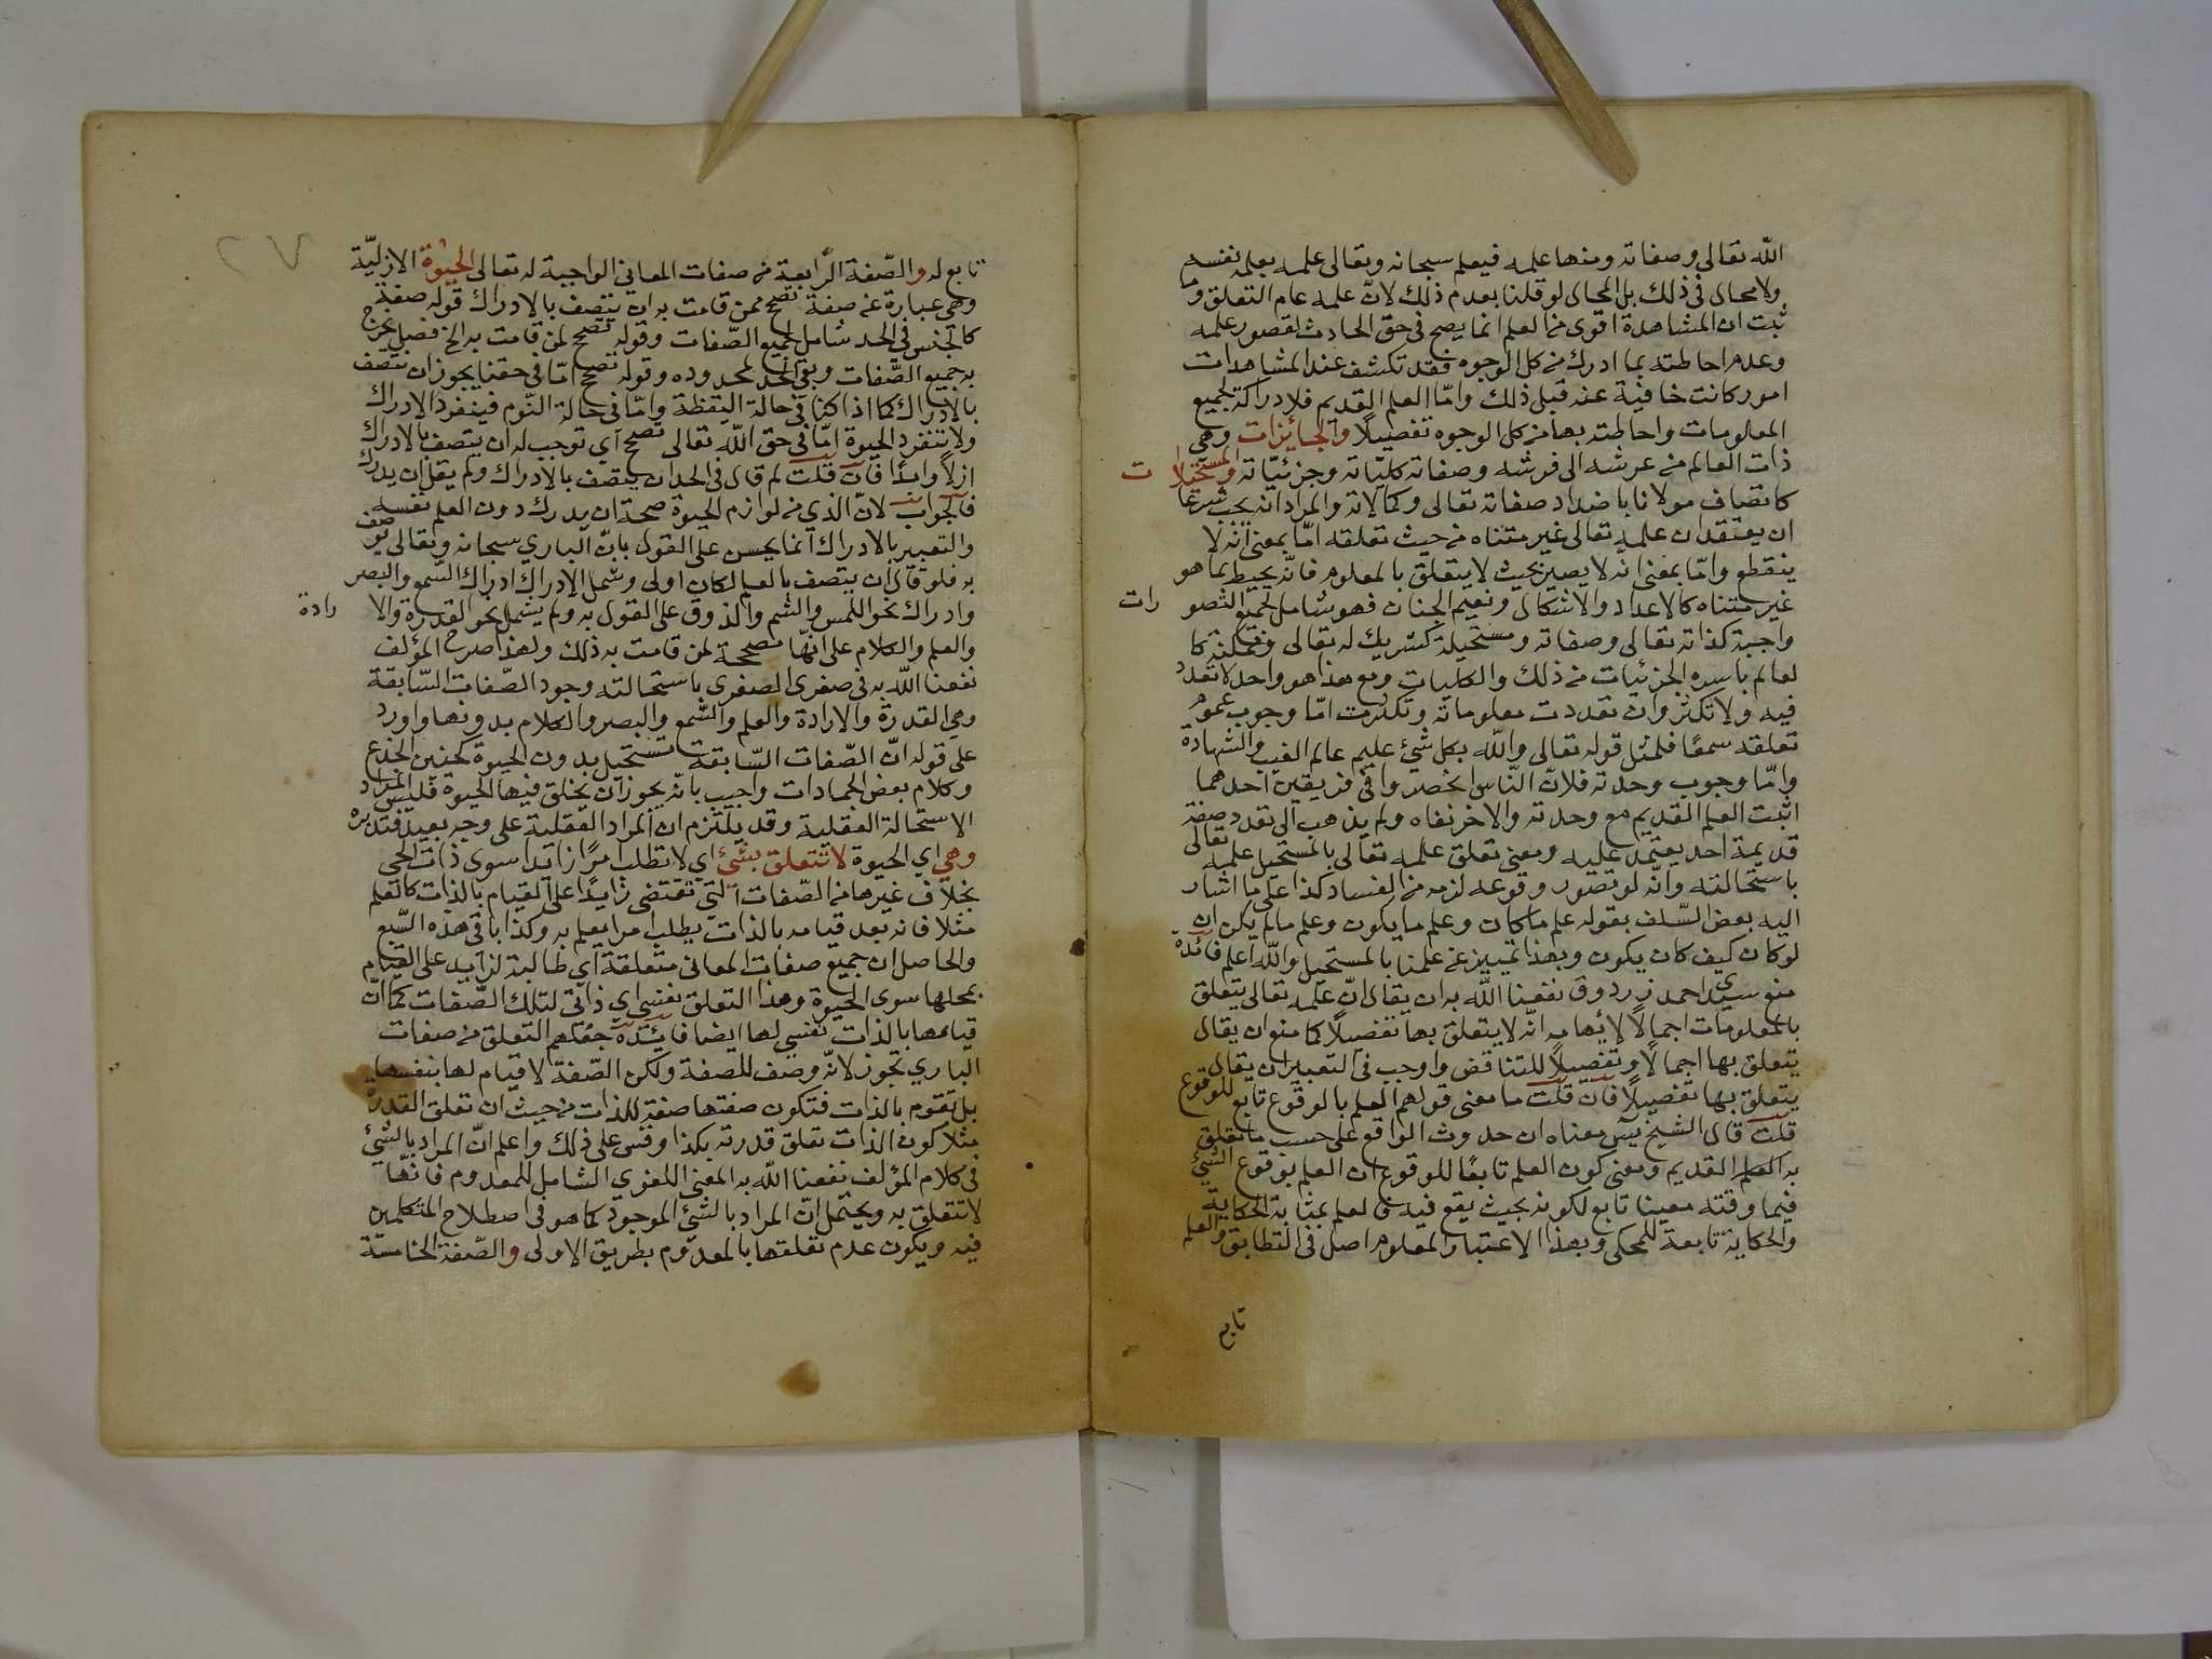 الله تعالى وصفاته ومنها علمه فيعلم سبحانه وتعالى علمه بعلمه نفسه
ولا محال في ذلك بل المحال لو قلنا بعدم ذلك لانّ علمه عام التعلق وما
ثبت ان المشاهدة اقوى من العلم انما يصح في حق الحادث لقصور علمه
وعدم احاطته بما ادرك من كل الوجوه فقد تكشف عند المشاهدات
امور كانت خافية عنه قبل ذلك وامّا العلم القديم فلا دراكة لجميع
المعلومات واحاطته بها من كل الوجوه تفصيلًا والجائزات وهي
ذات العالم من عرشه الى فرشه وصفاته كليّاته وجزئيّاته والمستحيلات
كاتصاف مولانا باضداد صفاته تعالى وكمالاته والمراد انه يجب شرعا
ان يعتقد ان علمه تعالى غير متناه من حيث تعلقه امّا بمعنى انه لا
ينقطع وامّا بمعنى انه لا يصير بحيث لا يتعلق بالمعلوم فانّه يحيط بما هو
غير متناه كالاعداد والاشكال ونعيم الجنان فهو شامل لجميع التصورات
واجبة كذاته تعالى وصفاته ومستحيلة كشريك له تعالى وممكنة كا
لعالم باسره الجزئيات من ذلك والكليات ومع هذا هو واحد لا تعدد
فيه ولا تكثر وان تعددت معلوماته وتكثرت امّا وجوب عموم
تعلقه سمعًا فلمثل قوله تعالى والله بكل شيء عليم عالم الغيب والشهادة
وامّا وجوب وحدته فلانّ النّاس انحصروا في فريقين احدهما
اثبت العلم القديم مع وحدته والاخر نفاه ولم يذهب الى تعدد صفة
قديمة احد يعتمد عليه ومعنى تعلق علمه تعالى بالمستحيل علمه تعالى
باستحالته وانّه لو تصور وقوعه لزمه من الفساد كذا على ما اشار
اليه بعض السّلف بقوله علم ما كان وعلم ما يكون وعلم ما لم يكن ان
لو كان كيف كان يكون وبهذا تمييز عن علمنا بالمستحيل والله اعلم فائدة
منع سيدي احمد زردوق نفعنا الله به ان يقال انّ علمه تعالى يتعلق
بالمعلومات اجمالًا لايهامه انّه لا يتعلق بها تفصيلًا كما منع ان يقال
يتعلق بها اجمالًا وتفصيلًا للتناقض واوجب في التعبير ان يقال
يتعلق بها تفصيلًا فان قلت ما معنى قولهم العلم بالوقوع تابع للوقوع
قلت قال الشيخ يس معناه ان حدوث الواقع على حسب ما تعلق
به العلم القديم ومعنى كون العلم تابعًا للوقوع ان العلم بوقوع الشيء
فيما وقته معينا تابع لكونه بحيث يقع فيه لعلم بمثابة الحكاية
والحكاية تابعة للمحكى وبهذا الاعتبار المعلوم اصل في التطابق والعلم
تابع
٢٧
تابع له والصّفة الرّابعة من صفات المعاني الواجبة له تعالى الحيوة الازليّة
وهي عبارة عن صفة تصح لمن قامت به ان يتصف بالادراك قوله صفة
كالجنس في الحد شامل لجميع الصّفات وقوله تصح لمن قامت به الخ فصل يخرج
به جميع الصّفات وبقي الحد لمحدوده وقوله تصح امّا في حقنا يجوز ان نتصف
بالادراك كما اذا كنا في حالة اليقظة وامّا في حالة النّوم فينفرد الادراك
ولا تنفرد الحيوة امّا في حق الله تعالى تصح اي توجب له ان يتصف بالادراك
ازلاً وابدًا فان قلت لم قال في الحد ان يتصف بالادراك ولم يقل ان يدرك
فالجواب لانّ الذي من لوازم الحيوة صحة ان يدرك دون العلم نفسه
والتعبير بالادراك انما يحسن على القول بانّ الباري سبحانه وتعالى يوصف
به فلو قال ان يتصف بالعلم لكان اولى وشمل الادراك ادراك السّمع والبصر
وادراك نحو اللمس والشم والذوق على القول به ولم يشمل نحو القدرة والارادة
والعلم والكلام على انّها مصححة لمن قامت به ذلك ولهذا صرح المؤلف
نفعنا الله به في صغرى الصغرى باستحالته وجود الصّفات السّابقة
وهي القدرة والارادة والعلم والسّمع والبصر والكلام بدونها واورد
على قوله انّ الصّفات السّابقة تستحيل بدون الحيوة كحنين الجذع
وكلام بعض الجمادات واجيب بانّه يجوز ان يخلق فيها الحيوة فليس المراد
الاستحالة العقلية وقد يلتزم ان المراد العقلية على وجه بعيد فتدبره
وهي اي الحيوة لا تتعلق بشيء اي لا تطلب امرًا زايدًا سوى ذات الحي
بخلاف غيرها من الصّفات التي تقتضى زايدًا على القيام بالذات كالعلم
مثلا فانه بعد قيامه بالذات يطلب امرا يعلم به وكذا باقي هذه السّبع
والحاصل ان جميع صفات المعاني متعلقة اي طالبة لزايد على القيام
بمحلها سوى الحيوة وهذا التعلق نفسي اي ذاتي لتلك الصّفات كما انّ
قيامها بالذات نفسي لها ايضا فائدة جعلهم التعلق من صفات
الباري تجوز لانّه وصف للصفة ولكن الصّفة لا قيام لها بنفسها
بل تقوم بالذات فتكون صفتها صفة للذات من حيث ان تعلق القدرة
مثلا كون الذات تعلق قدرته بكذا وقس على ذلك واعلم انّ المراد بالشيء
في كلام المؤلف نفعنا الله به المعنى اللغوي الشامل للمعدوم فانّها
لا تتعلق به ويحتمل ان المراد بالشيء الموجود كما هو في اصطلاح المتكلمين
فيه ويكون عدم تعلقها بالمعدوم بطريق الاولى والصّفة الخامسة